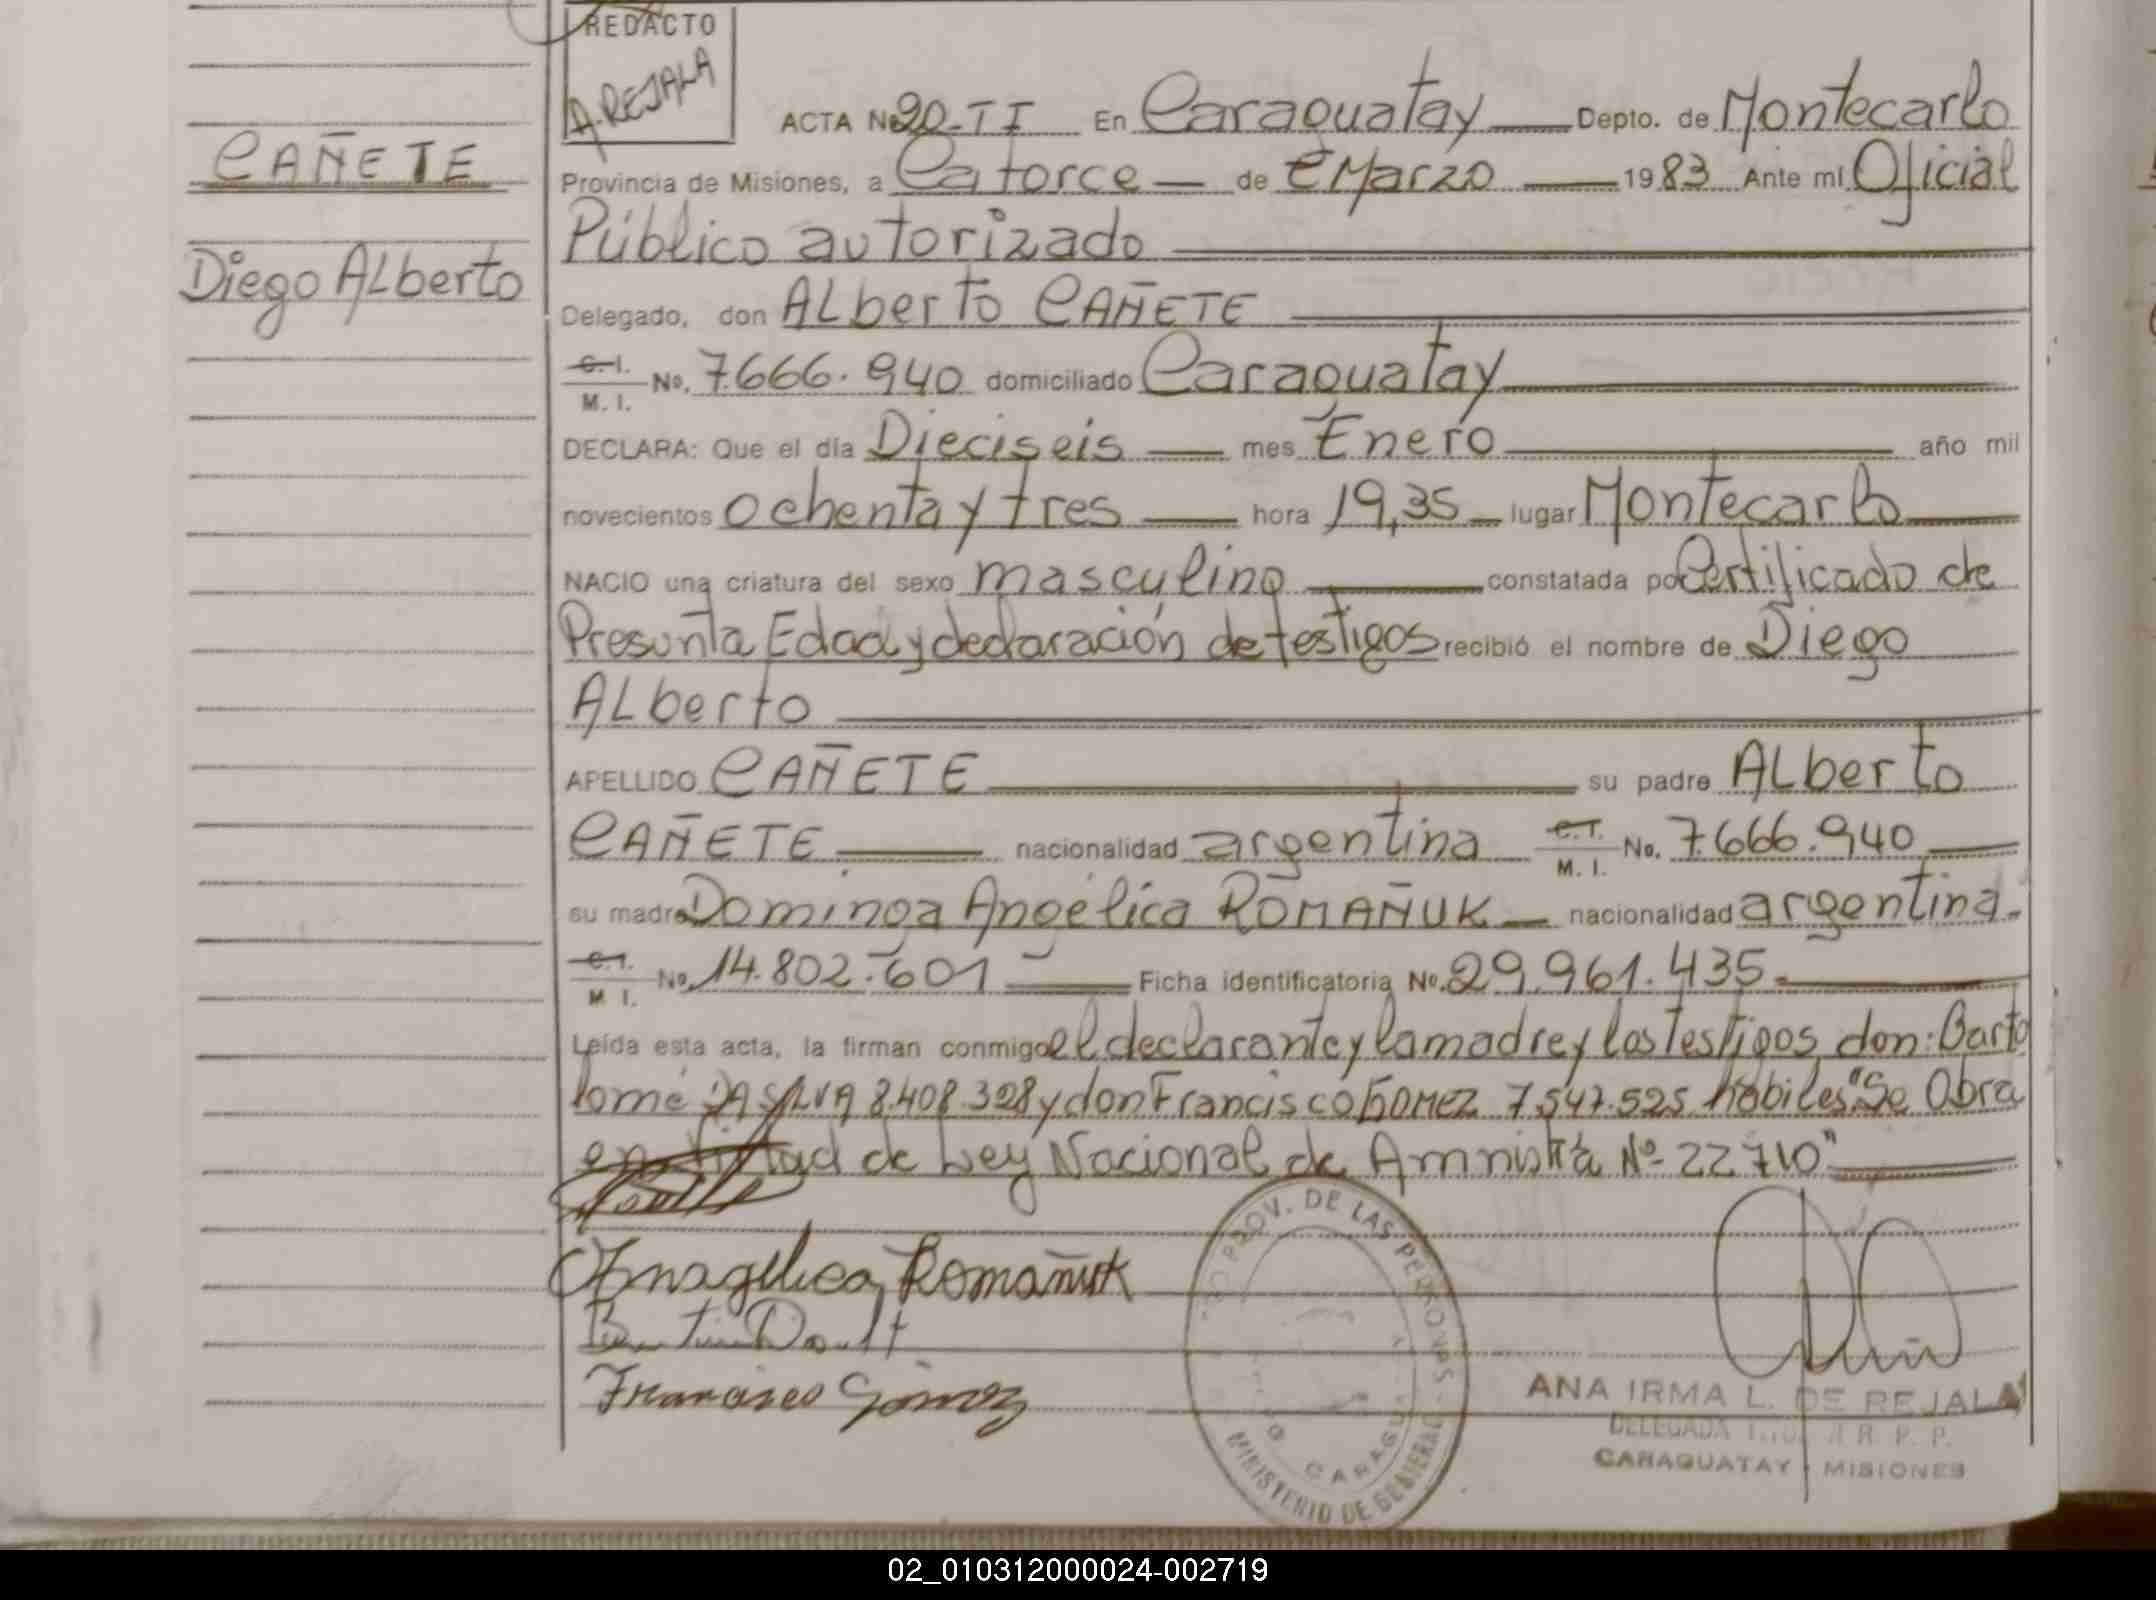 REDACTO
A. REJALA
ACTA Nº 20-II En Caraguatay Depto. de Montecarlo
CAÑETE
Provincia de Misiones, a Catorce de Marzo 1983 Ante mí Oficial
Público autorizado
Diego ALberto
Delegado, don ALberto CAÑETE
C.I.
M. I. No. 7.666.940 domiciliado Caraguatay
DECLARA: Que el día Dieciseis mes Enero año mil
novecientos ochenta y tres hora 19,35 lugar Montecarlo
NACIO una criatura del sexo masculino constatada por Certificado de
Presunta Edad y declaración de testigos recibió el nombre de Diego
ALberto
APELLIDO CAÑETE su padre ALberto
CAÑETE nacionalidad argentina C.I. M. I. No. 7.666.940
su madre Dominga Angélica ROMAÑUK nacionalidad argentina.
C.I.
M. I. No. 14.802.601 Ficha identificatoria No. 29.961.435
Leída esta acta, la firman conmigo el declarante y la madre y los testigos don: Barto
lomé DA SILVA 8.408.328 y don Francisco GOMEZ 7.547.525 hábiles "Se Obra
en virtud de Ley Nacional de Amnistía Nº 22710"
Anagelica Romañuk
Francisco Gómez
PROV. DE LAS PERSONAS
MINISTERIO DE GENERAL
CARAGUA
ANA IRMA L. DE REJALA
DELEGADA R. P. P.
CARAGUATAY MISIONES
02_010312000024-002719